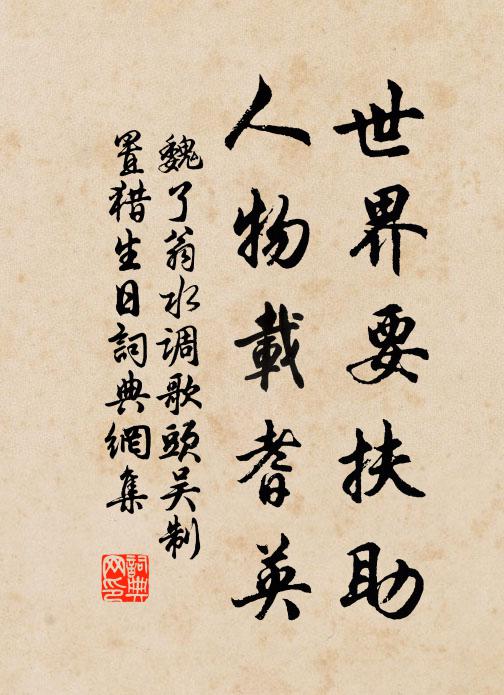 世界要扶助
人物載耆英
魏了翁水调歌頭吴制
置猎生日詞典網集
詞典网印